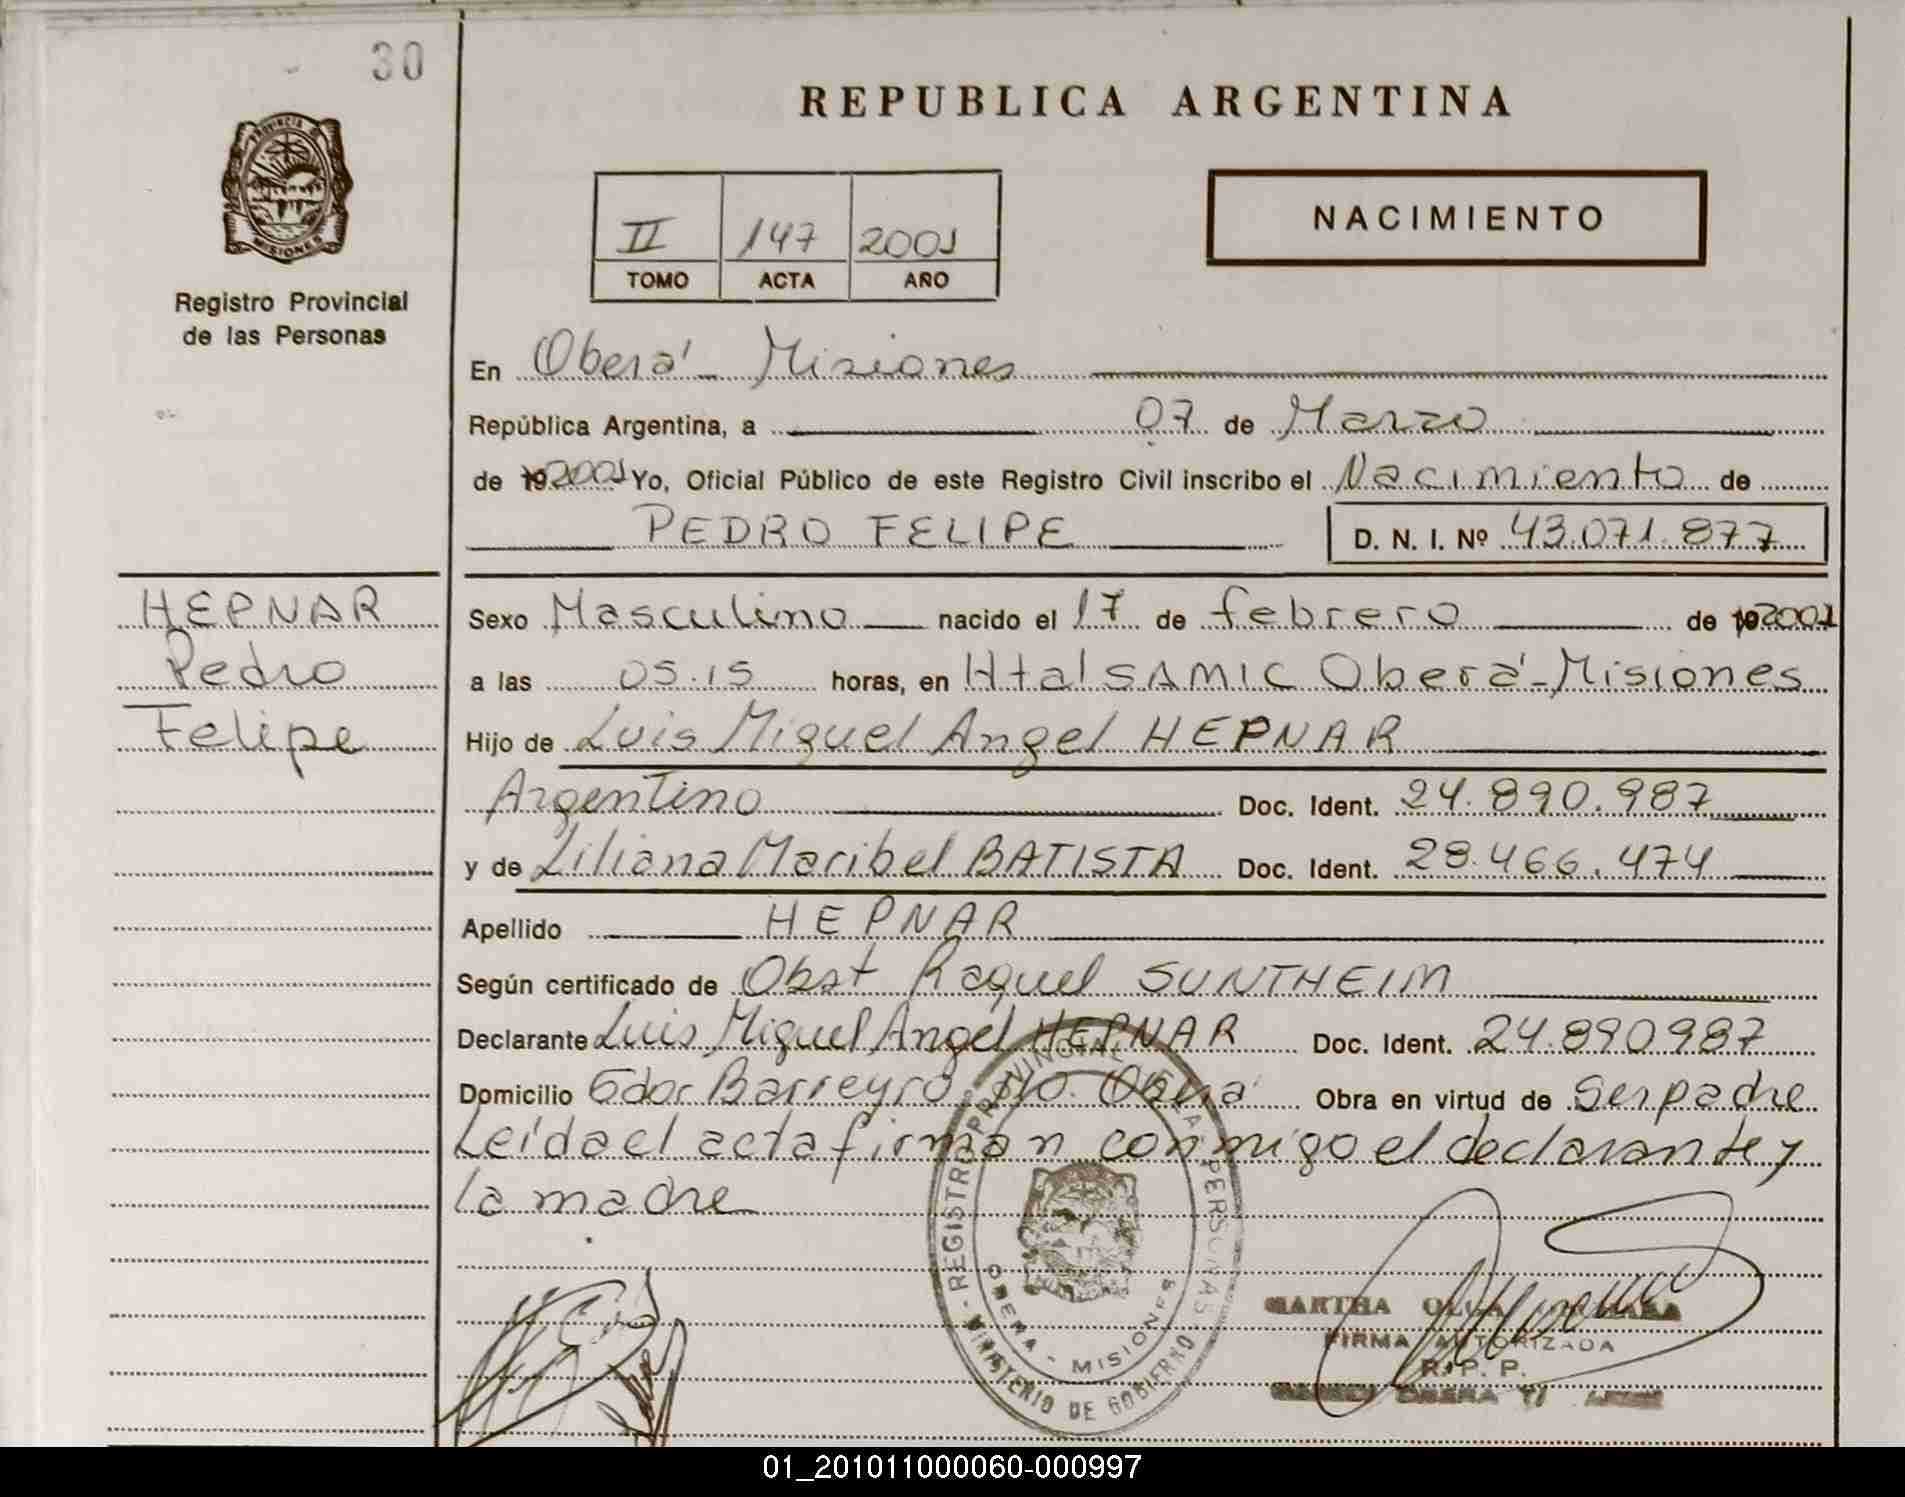 30
REPUBLICA ARGENTINA
PROVINCIA D
MISIONES
Registro Provincial
de las Personas
II 147 2001
TOMO ACTA AÑO
NACIMIENTO
En Oberá - Misiones
República Argentina, a 07 de Marzo
de 192001 Yo, Oficial Público de este Registro Civil inscribo el Nacimiento de
PEDRO FELIPE D. N. I. Nº 43.071.877
HEPNAR
Pedro
Felipe
Sexo Masculino nacido el 17 de febrero de 192001
a las 05.15 horas, en Htal SAMIC Oberá - Misiones
Hijo de Luis Miguel Angel HEPNAR
Argentino Doc. Ident. 24.890.987
y de Liliana Maribel BATISTA Doc. Ident. 28.466.474
Apellido HEPNAR
Según certificado de Obst Raquel SUNTHEIM
Declarante Luis Miguel Angel HEPNAR Doc. Ident. 24.890987
Domicilio Gdor Barreyro Oberá Obra en virtud de ser padre
Leída el acta firman conmigo el declarante y
la madre
REGISTRO PROVINCIAL DE LAS PERSONAS
MINISTERIO DE GOBIERNO
OBERA - MISIONES
MARTHA OLGA
FIRMA AUTORIZADA
R. P. P.
OBERA
01_201011000060-000997